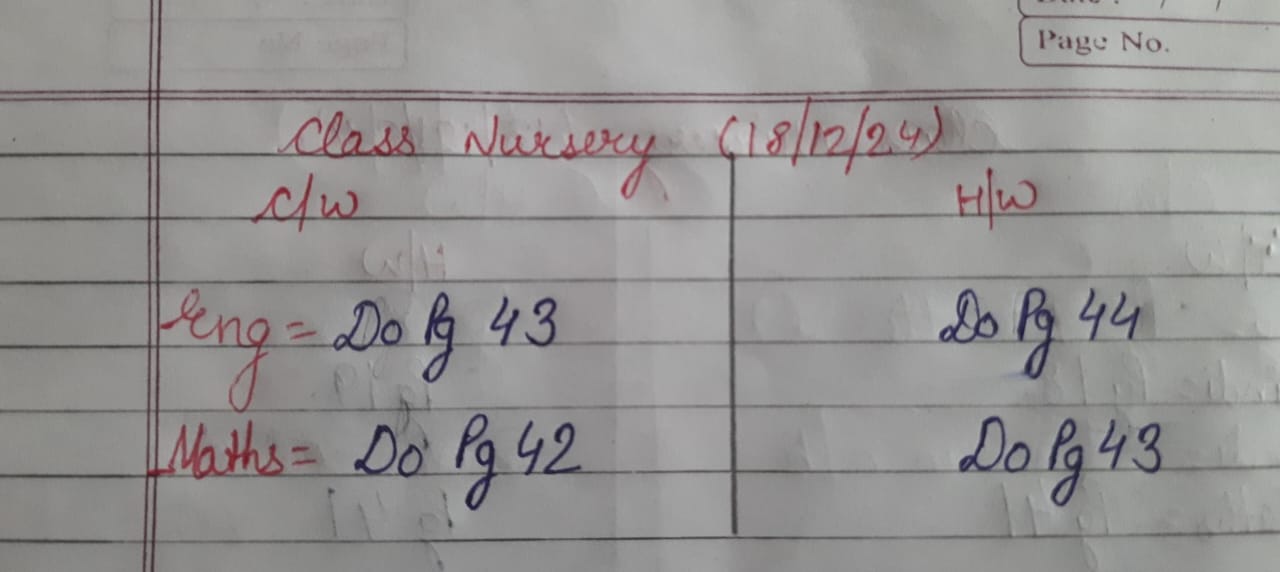 Page No.
Class Nursery (18/12/24)
C/W H/W
Eng = Do Pg 43 Do Pg 44
Maths = Do Pg 42 Do Pg 43